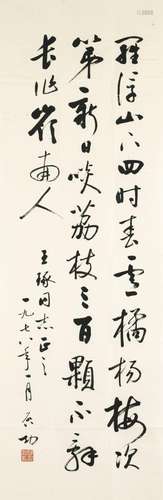 羅浮山下四時春盧橘楊梅次
第新日啖荔枝三百顆不辭
長作嶺南人
王琢同志正之
一九七八年一月 启功